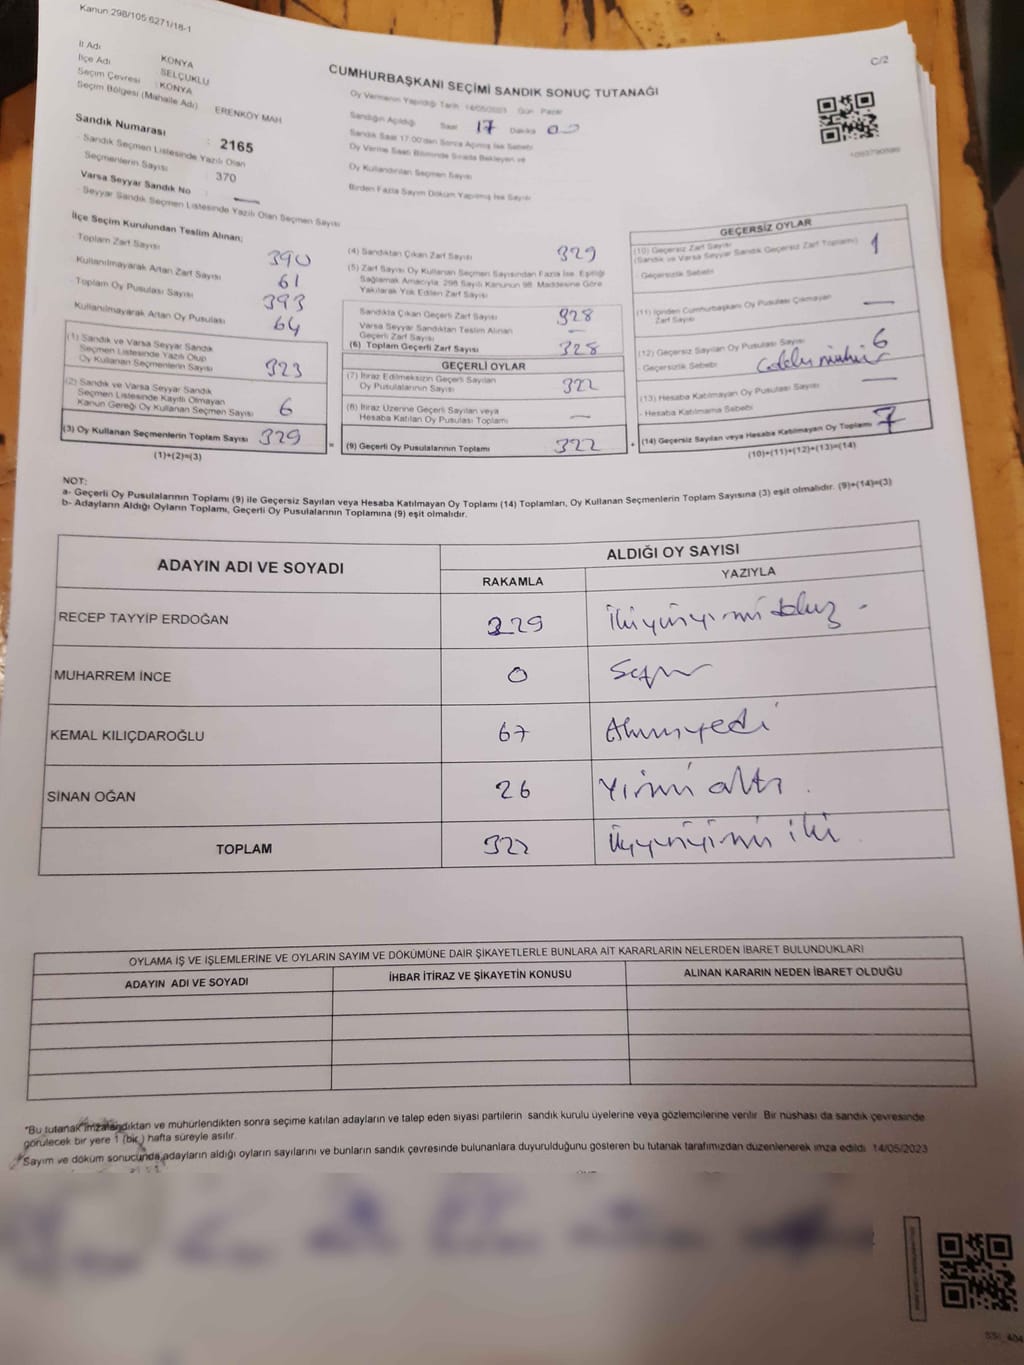 Kanun 298/105 6271/18-1
C/2
CUMHURBAŞKANI SEÇİMİ SANDIK SONUÇ TUTANAĞI
İl Adı KONYA
İlçe Adı SELÇUKLU
Seçim Çevresi : KONYA
Seçim Bölgesi (Mahalle Adı) ERENKÖY MAH
Sandık Numarası : 2165
Sandık Seçmen Listesinde Yazılı Olan
Seçmenlerin Sayısı : 370
Varsa Seyyar Sandık No
Seyyar Sandık Seçmen Listesinde Yazılı Olan Seçmen Sayısı
Oy Vermenin Yapıldığı Tarih 14/05/2023 Gün Pazar
Sandığın Açıldığı Saat 17 Dakika 00
Sandık Saat 17:00'den Sonra Açılmış İse Sebebi
Oy Verme Saati Bitiminde Sırada Bekleyen ve
Oy Kullandırılan Seçmen Sayısı
Birden Fazla Sayım Döküm Yapılmış İse Sayısı
İlçe Seçim Kurulundan Teslim Alınan;
Toplam Zarf Sayısı 390
Kullanılmayarak Artan Zarf Sayısı 61
Toplam Oy Pusulası Sayısı 393
Kullanılmayarak Artan Oy Pusulası 64
(1) Sandık ve Varsa Seyyar Sandık
Seçmen Listesinde Yazılı Olup
Oy Kullanan Seçmenlerin Sayısı 323
(2) Sandık ve Varsa Seyyar Sandık
Seçmen Listesinde Kayıtlı Olmayan
Kanun Gereği Oy Kullanan Seçmen Sayısı 6
(3) Oy Kullanan Seçmenlerin Toplam Sayısı 329
(1)+(2)=(3)
(4) Sandıktan Çıkan Zarf Sayısı 329
(5) Zarf Sayısı Oy Kullanan Seçmen Sayısından Fazla İse, Eşitliği
Sağlamak Amacıyla, 298 Sayılı Kanunun 98. Maddesine Göre
Yakılarak Yok Edilen Zarf Sayısı
Sandıkta Çıkan Geçerli Zarf Sayısı 328
Varsa Seyyar Sandıktan Teslim Alınan
Geçerli Zarf Sayısı —
(6) Toplam Geçerli Zarf Sayısı 328
GEÇERLİ OYLAR
(7) İtiraz Edilmeksizin Geçerli Sayılan
Oy Pusulalarının Sayısı 322
(8) İtiraz Üzerine Geçerli Sayılan veya
Hesaba Katılan Oy Pusulası Toplamı —
= (9) Geçerli Oy Pusulalarının Toplamı 322
GEÇERSİZ OYLAR
(10) Geçersiz Zarf Sayısı
(Sandık ve Varsa Seyyar Sandık Geçersiz Zarf Toplamı) 1
Geçersizlik Sebebi
(11) İçinden Cumhurbaşkanı Oy Pusulası Çıkmayan
Zarf Sayısı —
(12) Geçersiz Sayılan Oy Pusulası Sayısı 6
- Geçersizlik Sebebi
(13) Hesaba Katılmayan Oy Pusulası Sayısı —
- Hesaba Katılmama Sebebi
+ (14) Geçersiz Sayılan veya Hesaba Katılmayan Oy Toplamı 7
(10)+(11)+(12)+(13)=(14)
NOT:
a- Geçerli Oy Pusulalarının Toplamı (9) ile Geçersiz Sayılan veya Hesaba Katılmayan Oy Toplamı (14) Toplamları, Oy Kullanan Seçmenlerin Toplam Sayısına (3) eşit olmalıdır. (9)+(14)=(3)
b- Adayların Aldığı Oyların Toplamı, Geçerli Oy Pusulalarının Toplamına (9) eşit olmalıdır.
ADAYIN ADI VE SOYADI ALDIĞI OY SAYISI
RAKAMLA YAZIYLA
RECEP TAYYİP ERDOĞAN 229 ikiyüzyirmidokuz
MUHARREM İNCE 0 Sıfır
KEMAL KILIÇDAROĞLU 67 Altmışyedi
SİNAN OĞAN 26 Yirmi altı
TOPLAM 322 üçyüzyirmi iki
OYLAMA İŞ VE İŞLEMLERİNE VE OYLARIN SAYIM VE DÖKÜMÜNE DAİR ŞİKAYETLERLE BUNLARA AİT KARARLARIN NELERDEN İBARET BULUNDUKLARI
ADAYIN ADI VE SOYADI İHBAR İTİRAZ VE ŞİKAYETİN KONUSU ALINAN KARARIN NEDEN İBARET OLDUĞU
*Bu tutanak imzalandıktan ve mühürlendikten sonra seçime katılan adayların ve talep eden siyasi partilerin sandık kurulu üyelerine veya gözlemcilerine verilir. Bir nüshası da sandık çevresinde
görülecek bir yere 1 (bir) hafta süreyle asılır.
*Sayım ve döküm sonucunda adayların aldığı oyların sayılarını ve bunların sandık çevresinde bulunanlara duyurulduğunu gösteren bu tutanak tarafımızdan düzenlenerek imza edildi. 14/05/2023